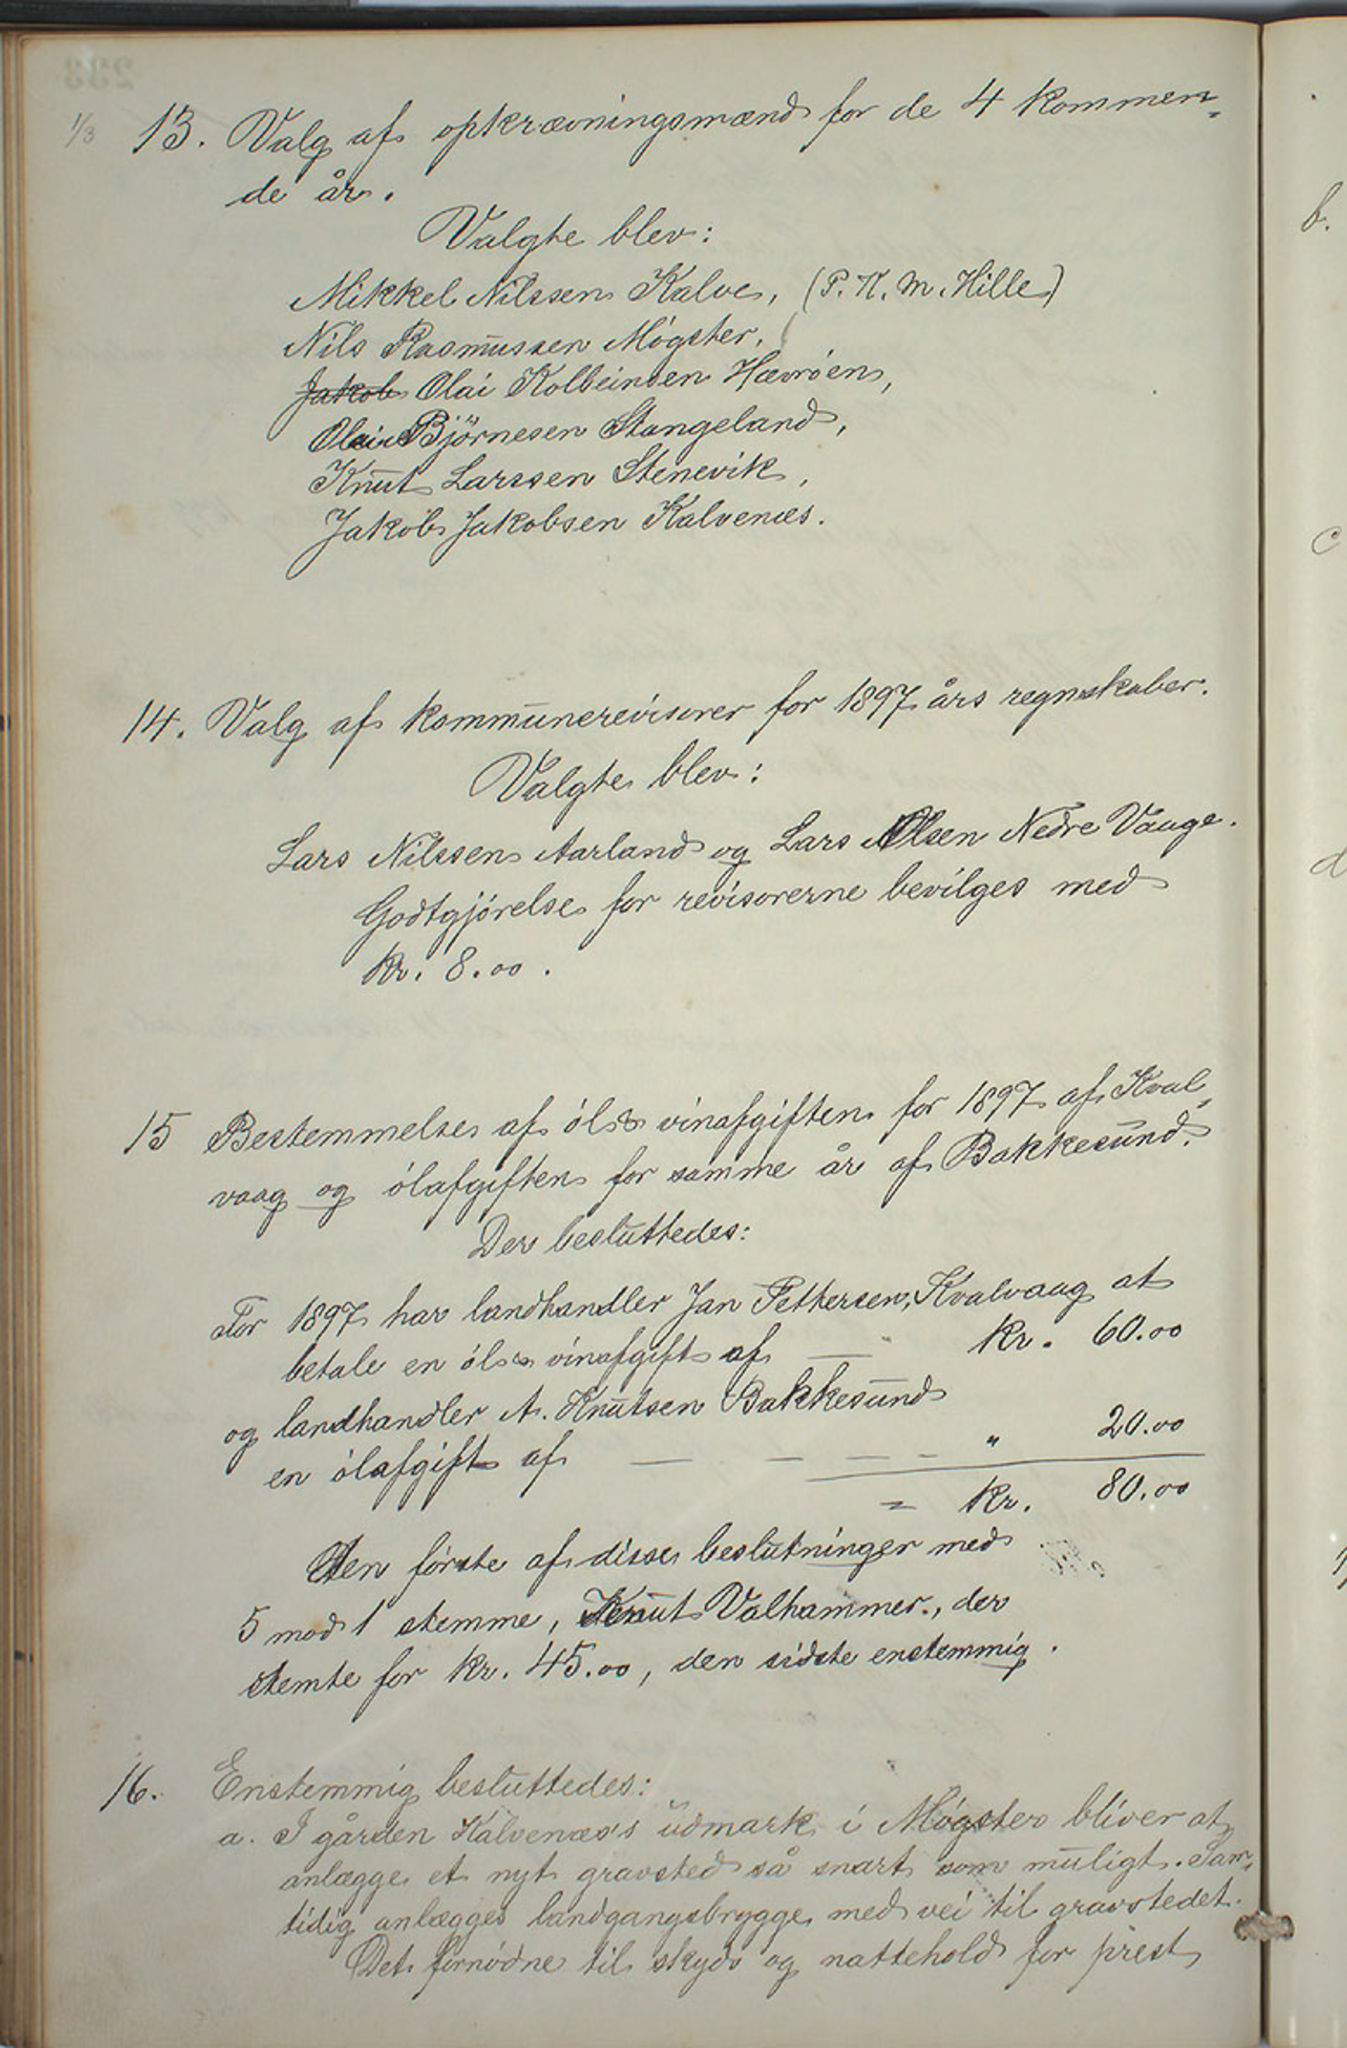 1/3
13. Valg af opkrævningsmænd for de 4 kommen-
de år.
Valgte blev:
Mikkel Nilssen Kalve, (P. K. M. Hille)
Nils Rasmussen Møgster,
Jakob Olai Kolbeinsen Hævrøen,
Olai Bjørnesen Stangeland,
Knut Larssen Stenevik,
Jakob Jakobsen Kalvenæs.
14. Valg af kommunerevisorer for 1897 års regnskaber.
Valgte blev:
Lars Nilssen Aarland og Lars Olsen Nedre Vauge.
Godtgjørelse for revisorerne bevilges med
kr. 8.00.
15 Bestemmelse af øl & vinafgiften for 1897 af Kval-
vaag og ølafgiften for samme år af Bakkesund.
Der besluttedes:
For 1897 har landhandler Jan Pettersen, Kvalvaag at
betale en øl & vinafgift af — kr. 60.00
og landhandler A. Knutsen Bakkesund
en ølafgift af — — — — " 20.00
= kr. 80.00
Den første af disse beslutninger med
5 mod 1 stemme, Knut Valhammer, der
stemte for kr. 45.00, den sidste enstemmig.
16. Enstemmig besluttedes:
a. I gården Kalvenæs's udmark i Møgster bliver at
anlægge et nyt gravsted så snart som muligt. Sam-
tidig anlægges landgangsbrygge med vei til gravstedet.
Det fornødne til skyds og nattehold for prest
b.
c
d